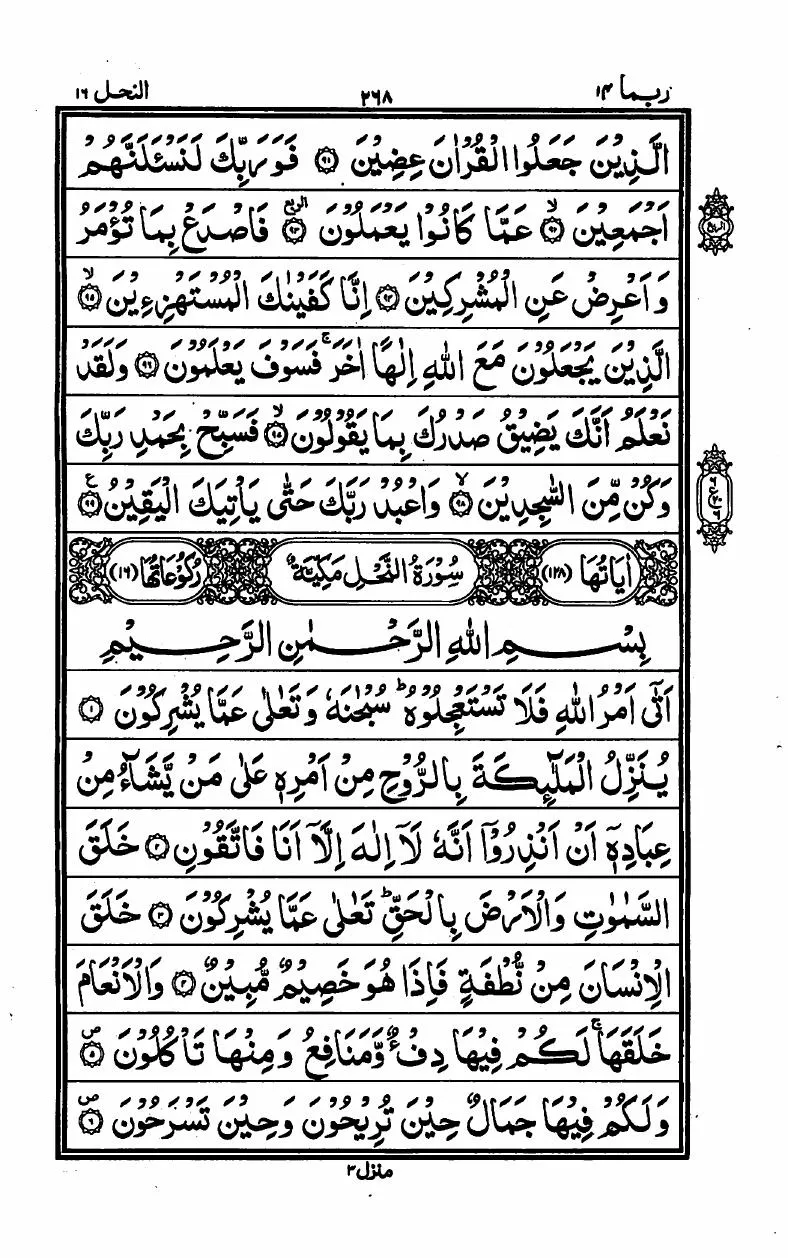 ربما ١٤ ٢٦٨ النحل ١٦
الَّذِيْنَ جَعَلُوا الْقُرْاٰنَ عِضِيْنَ ﴿٩١﴾ فَوَرَبِّكَ لَنَسْـَٔلَنَّهُمْ
اَجْمَعِيْنَ ۙ﴿٩٢﴾ عَمَّا كَانُوْا يَعْمَلُوْنَ ﴿٩٣﴾ فَاصْدَعْ بِمَا تُؤْمَرُ
وَاَعْرِضْ عَنِ الْمُشْرِكِيْنَ ﴿٩٤﴾ اِنَّا كَفَيْنٰكَ الْمُسْتَهْزِءِيْنَ ۙ﴿٩٥﴾
الَّذِيْنَ يَجْعَلُوْنَ مَعَ اللّٰهِ اِلٰهًا اٰخَرَ ۚ فَسَوْفَ يَعْلَمُوْنَ ﴿٩٦﴾ وَلَقَدْ
نَعْلَمُ اَنَّكَ يَضِيْقُ صَدْرُكَ بِمَا يَقُوْلُوْنَ ۙ﴿٩٧﴾ فَسَبِّحْ بِحَمْدِ رَبِّكَ
وَكُنْ مِّنَ السّٰجِدِيْنَ ﴿٩٨﴾ وَاعْبُدْ رَبَّكَ حَتّٰى يَاْتِيَكَ الْيَقِيْنُ ﴿٩٩﴾
اٰيَاتُهَا (١٢٨) سُوْرَةُ النَّحْلِ مَكِّيَّةٌ رُكُوْعَاتُهَا (١٦)
بِسْمِ اللّٰهِ الرَّحْمٰنِ الرَّحِيْمِ
اَتٰۤى اَمْرُ اللّٰهِ فَلَا تَسْتَعْجِلُوْهُ ؕ سُبْحٰنَهٗ وَتَعٰلٰى عَمَّا يُشْرِكُوْنَ ﴿١﴾
يُنَزِّلُ الْمَلٰٓئِكَةَ بِالرُّوْحِ مِنْ اَمْرِهٖ عَلٰى مَنْ يَّشَآءُ مِنْ
عِبَادِهٖۤ اَنْ اَنْذِرُوْۤا اَنَّهٗ لَاۤ اِلٰهَ اِلَّاۤ اَنَا فَاتَّقُوْنِ ﴿٢﴾ خَلَقَ
السَّمٰوٰتِ وَالْاَرْضَ بِالْحَقِّ ؕ تَعٰلٰى عَمَّا يُشْرِكُوْنَ ﴿٣﴾ خَلَقَ
الْاِنْسَانَ مِنْ نُّطْفَةٍ فَاِذَا هُوَ خَصِيْمٌ مُّبِيْنٌ ﴿٤﴾ وَالْاَنْعَامَ
خَلَقَهَا ۚ لَكُمْ فِيْهَا دِفْءٌ وَّمَنَافِعُ وَمِنْهَا تَاْكُلُوْنَ ۪﴿٥﴾
وَلَكُمْ فِيْهَا جَمَالٌ حِيْنَ تُرِيْحُوْنَ وَحِيْنَ تَسْرَحُوْنَ ۪﴿٦﴾
منزل ٣